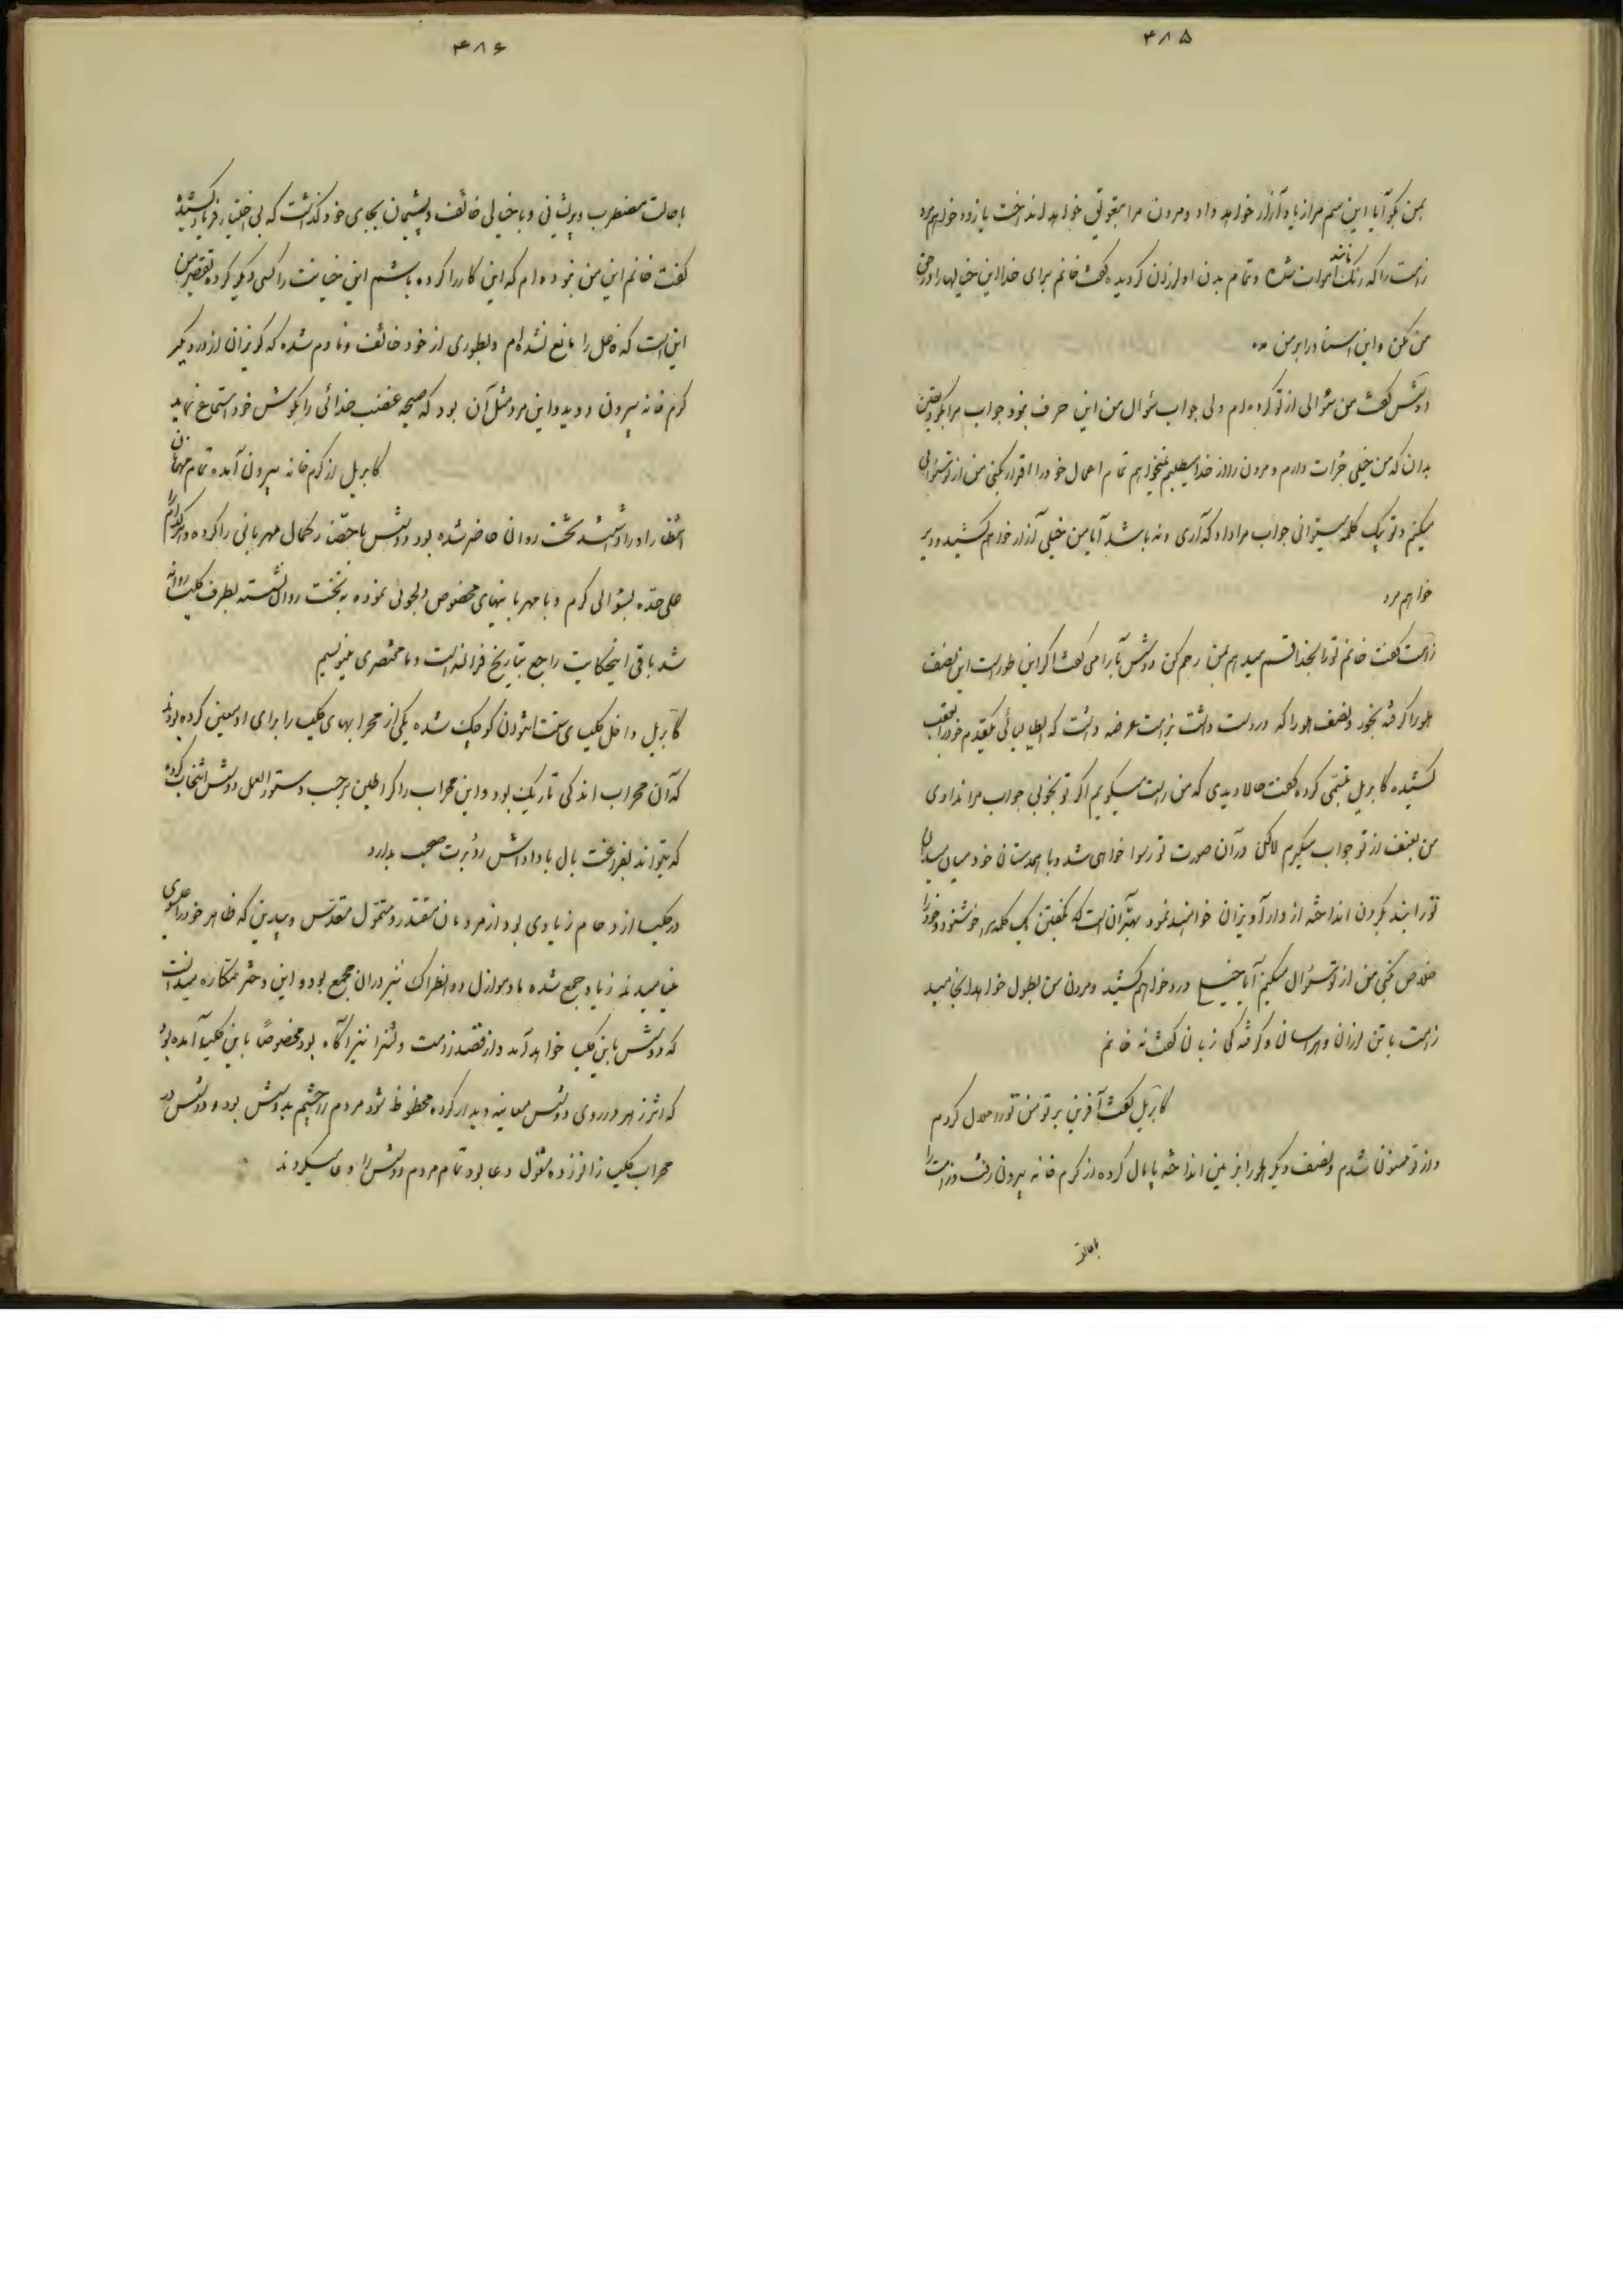 ۴۸۵
بمن بگو آیا این سم مرا زیاد آزار خواهد داد و مردن مرا بتعویق خواهد انداخت یا زود خواهم مرد
زامت را که رنگ مانند اموات شده و تمام بدن او لرزان گردیده گفت خانم برای خدا این خیالها را در حق
من مکن و این اسناد را بر من مده
دوشس گفت من سؤالی از تو کرده‌ام ولی جواب سؤال من این حرف نبود جواب مرا بگو و یقین
بدان که من خیلی جرأت دارم و مردن را از خدا میطلبم نمیخواهم تمام اعمال خود را اقرار بکنی من از تو سئوالی
میکنم و تو بیک کلمه میتوانی جواب مرا داد که آری و نه باشد آیا من خیلی آزار خواهم کشید و دیر
خواهم مرد
زامت گفت خانم تو را بخدا قسم میدهم بمن رحم کن دوشس آرامی گفت اگر این طور است این نصف
هلو را گرفته بخور و نصف هلو را که در دست داشت بزامت عرضه داشت که ایطالیائی یکقدم خود را بعقب
کشیده کابریل تبسمی کرده گفت حالا دیدی که من راست میگویم اگر تو بخوبی جواب مرا ندادی
من بعنف از تو جواب میگیرم لاکن در آن صورت تو رسوا خواهی شد و با همدستان خود میان میدان
تو را بند بگردن انداخته از دار آویزان خواهند نمود بهتر آن است که بگفتن یک کلمه مرا خوشنود و خود را
خلاص کنی من از تو سئوال میکنم آیا خیلی درد خواهم کشید و مردن من بطول خواهد انجامید
زامت با تن لرزان و هراسان و گرفته‌گی زبان گفت نه خانم
کابریل گفت آفرین بر تو من تو را حلال کردم
و از تو ممنون شدم و نصف دیگر هلو را بزمین انداخته پامال کرده از گرم خانه بیرون رفت و زامت را
باحالت
۴۸۶
باحالت مضطرب و پریشانی و با خیالی خائف و پشیمان بجای خود گذاشت که بی اختیار فریاد کشیده
گفت خانم این من نبوده‌ام که این کار را کرده باشم این خیانت را کسی دیگر کرده تقصیر من
این است که فاعل را مانع نشده‌ام و بطوری از خود خائف و نادم شده که گریزان از در دیگر
گرم خانه بیرون دوید و این مرد مثل آن بود که صیحه غضب خدائی را بگوش خود استماع نماید
کابریل از گرم خانه بیرون آمده تمام مهمانان
انتظار او را داشتند تخت روان حاضر شده بود دوشس با حضار کمال مهربانی را کرده و هر کدام را
علی حده بسئوالی گرم و با مهربانیهای مخصوص دلجوئی نموده به تخت روان نشسته بطرف کلیسا روانه
شد باقی اینحکایت راجع بتاریخ فرانسه است و ما مختصری مینویسیم
کابریل داخل کلیسای سنت انتوان کوچک شده یکی از محرابهای کلیسا را برای او معین کرده بودند
که آن محراب اندکی تاریک بود و این محراب را گراطلین برحسب دستورالعمل دوشس انتخاب کرده
که بتواند بفراغت بال با داداش روبرت صحبت بدارد
در کلیسا ازدحام زیادی بود از مردمان مقتدر و متموّل متقدس و بیدین که ظاهر خود را عیسوی
مینامیدند زیاد جمع شده مادموازل دو انطراک نیز در آن مجمع بود و این دختر مکاره میدانست
که دوشس باین کلیسا خواهد آمد و از قصد زامت و لنرا نیز آگاه بود مخصوصاً باین کلیسا آمده بود
که اثر زهر در روی دوشس معاینه و دیدار کرده محظوظ شود مردم را چشم بدوشس بود و دوشس در
محراب کلیسا زانو زده مشغول دعا بود تمام مردم دوشس را دعا میکردند